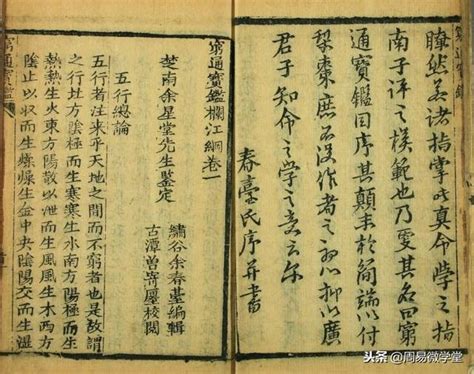 瞭然若諸指掌此真命學之指
南子評之模範也乃更其名曰窮
通寶鑑因序其顛末於簡端以付
棃棗庶不没作者之初心抑以廣
君子知命之學之意云尔
春臺氏序并書
窮通寶鑑欄江網卷一
楚南余星堂先生鑒定
繡谷余春臺編輯
古潭曾 校閱
五行總論
五行者往來乎天地之間而不窮者也故謂
之行北方陰極而生寒寒生水南方陽極而生
熱熱生火東方陽散以泄而生風風生木西方
陰止以收而生燥燥生金中央陰陽交而生溼
窮通寶鑑
头条 @周易微学堂